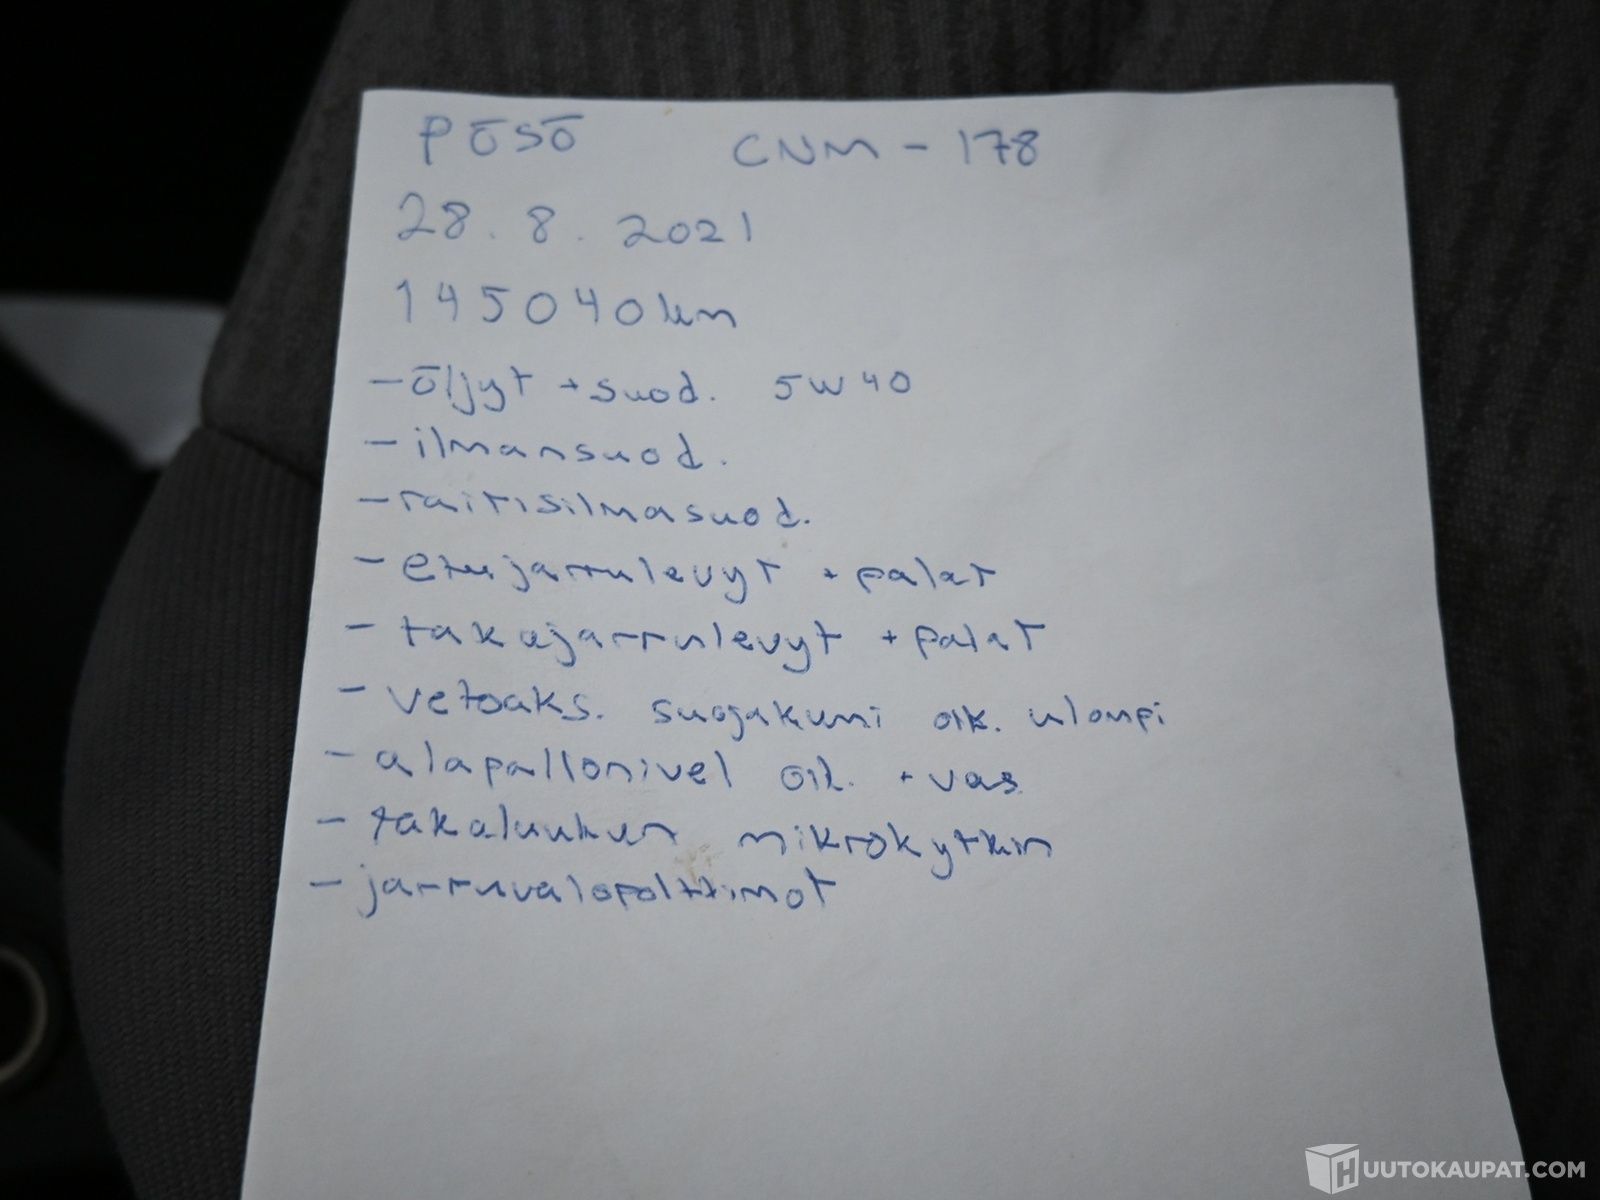 PÖSÖ CNM-178
28.8.2021
145040km
- öljyt + suod. 5W40
- ilmansuod.
- raitisilmasuod.
- etujarrulevyt + palat
- takajarrulevyt + palat
- vetoaks. suojakumi oik. ulompi
- alapallonivel oik. + vas
- takaluukun mikrokytkin
- jarruvalopolttimot
HUUTOKAUPAT.COM